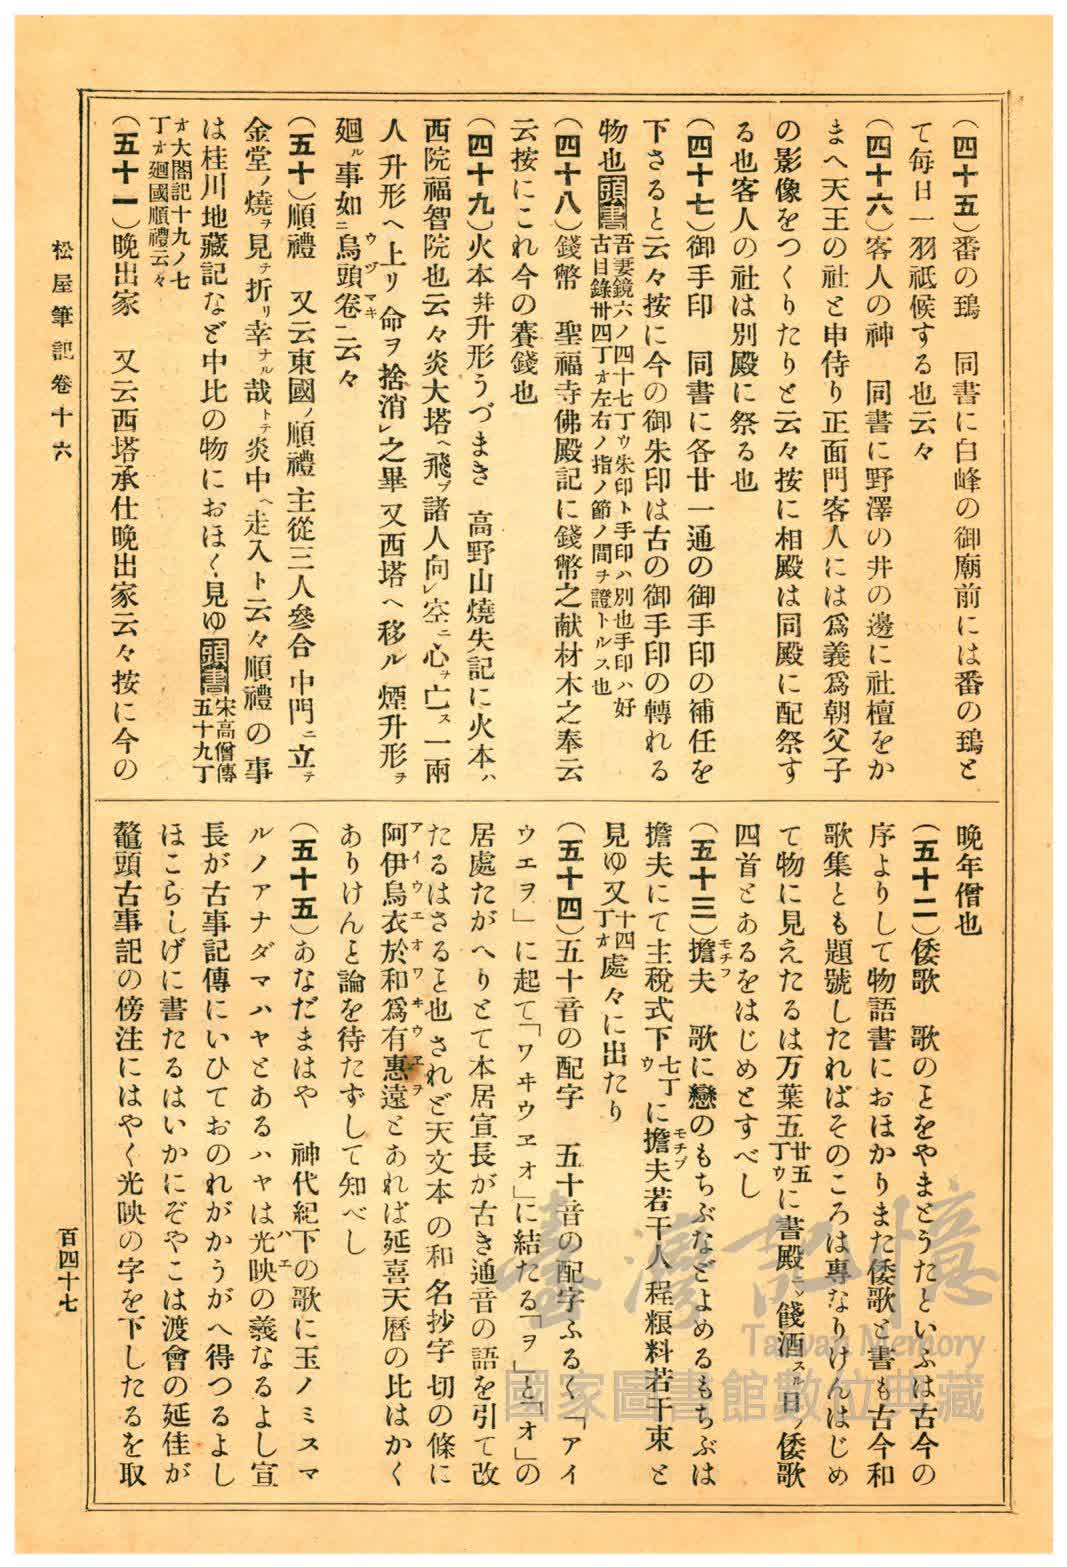 (四十五)番の鵄　同書に白峰の御廟前には番の鵄と
て毎日一羽祗候する也云々
(四十六)客人の神　同書に野澤の井の邊に社檀をか
まへ天王の社と申侍り正面門客人には爲義爲朝父子
の影像をつくりたりと云々按に相殿は同殿に配祭す
る也客人の社は別殿に祭る也
(四十七)御手印　同書に各廿一通の御手印の補任を
下さると云々按に今の御朱印は古の御手印の轉れる
物也頭書吾妻鏡六ノ四十七丁ウ朱印ト手印ハ別也手印ハ好
古目錄卅四丁オ左右ノ指ノ節ノ間ヲ證トルス也
(四十八)錢幣　聖福寺佛殿記に錢幣之献材木之奉云
云按にこれ今の賽錢也
(四十九)火本幷升形うづまき　高野山燒失記に火本ハ
西院福智院也云々炎大塔ヘ飛ブ諸人向レ空ニ心ヲ亡ス一兩
人升形ヘ上リ命ヲ捨消レ之畢又西塔ヘ移ル煙升形ヲ
廻ル事如ニ烏頭卷ウヅマキ一ニ云々
(五十)順禮　又云東國ノ順禮主從三人參合中門ニ立テ
金堂ノ燒ヲ見テ折リ幸ナル哉トテ炎中ヘ走入ト云々順禮の事
は桂川地藏記など中比の物におほく見ゆ頭書宋高僧傳
五十九丁
オ大閤記十九ノ七
丁オ廻國順禮云々
(五十一)晩出家　又云西塔承仕晩出家云々按に今の
晩年僧也
(五十二)倭歌　歌のとをやまとうたといふは古今の
序よりして物語書におほかりまた倭歌と書も古今和
歌集とも題號したればそのころは專なりけんはじめ
て物に見えたるは万葉五廿五丁ウに書殿ニ餞酒スル日ノ倭歌
四首とあるをはじめとすべし
(五十三)擔夫モチフ　歌に戀のもちぶなどよめるもちぶは
擔夫にて主稅式下七丁ウに擔夫モチブ若干人程粮料若干束と
見ゆ又十四丁オ處々に出たり
(五十四)五十音の配字　五十音の配字ふるく「アイ
ウエヲ」に起て「ワヰウヱオ」に結たる「ヲ」と「オ」の
居處たがへりとて本居宣長が古き通音の語を引て改
たるはさると也されど天文本の和名抄字切の條に
阿伊烏衣於和爲有惠遠アイウエオワヰウヱヲとあれば延喜天曆の比はかく
ありけんと論を待たずして知べし
(五十五)あなだまはや　神代紀下の歌に玉ノミスマ
ルノアナダマハヤとあるハヤは光映ハエの義なるよし宣
長が古事記傳にいひておのれがかうがへ得つるよし
ほこらしげに書たるはいかにぞやこは渡會の延佳が
鼇頭古事記の傍注にはやく光映の字を下したるを取
松屋筆記卷十六
百四十七
臺灣記憶
Taiwan Memory
國家圖書館數位典藏